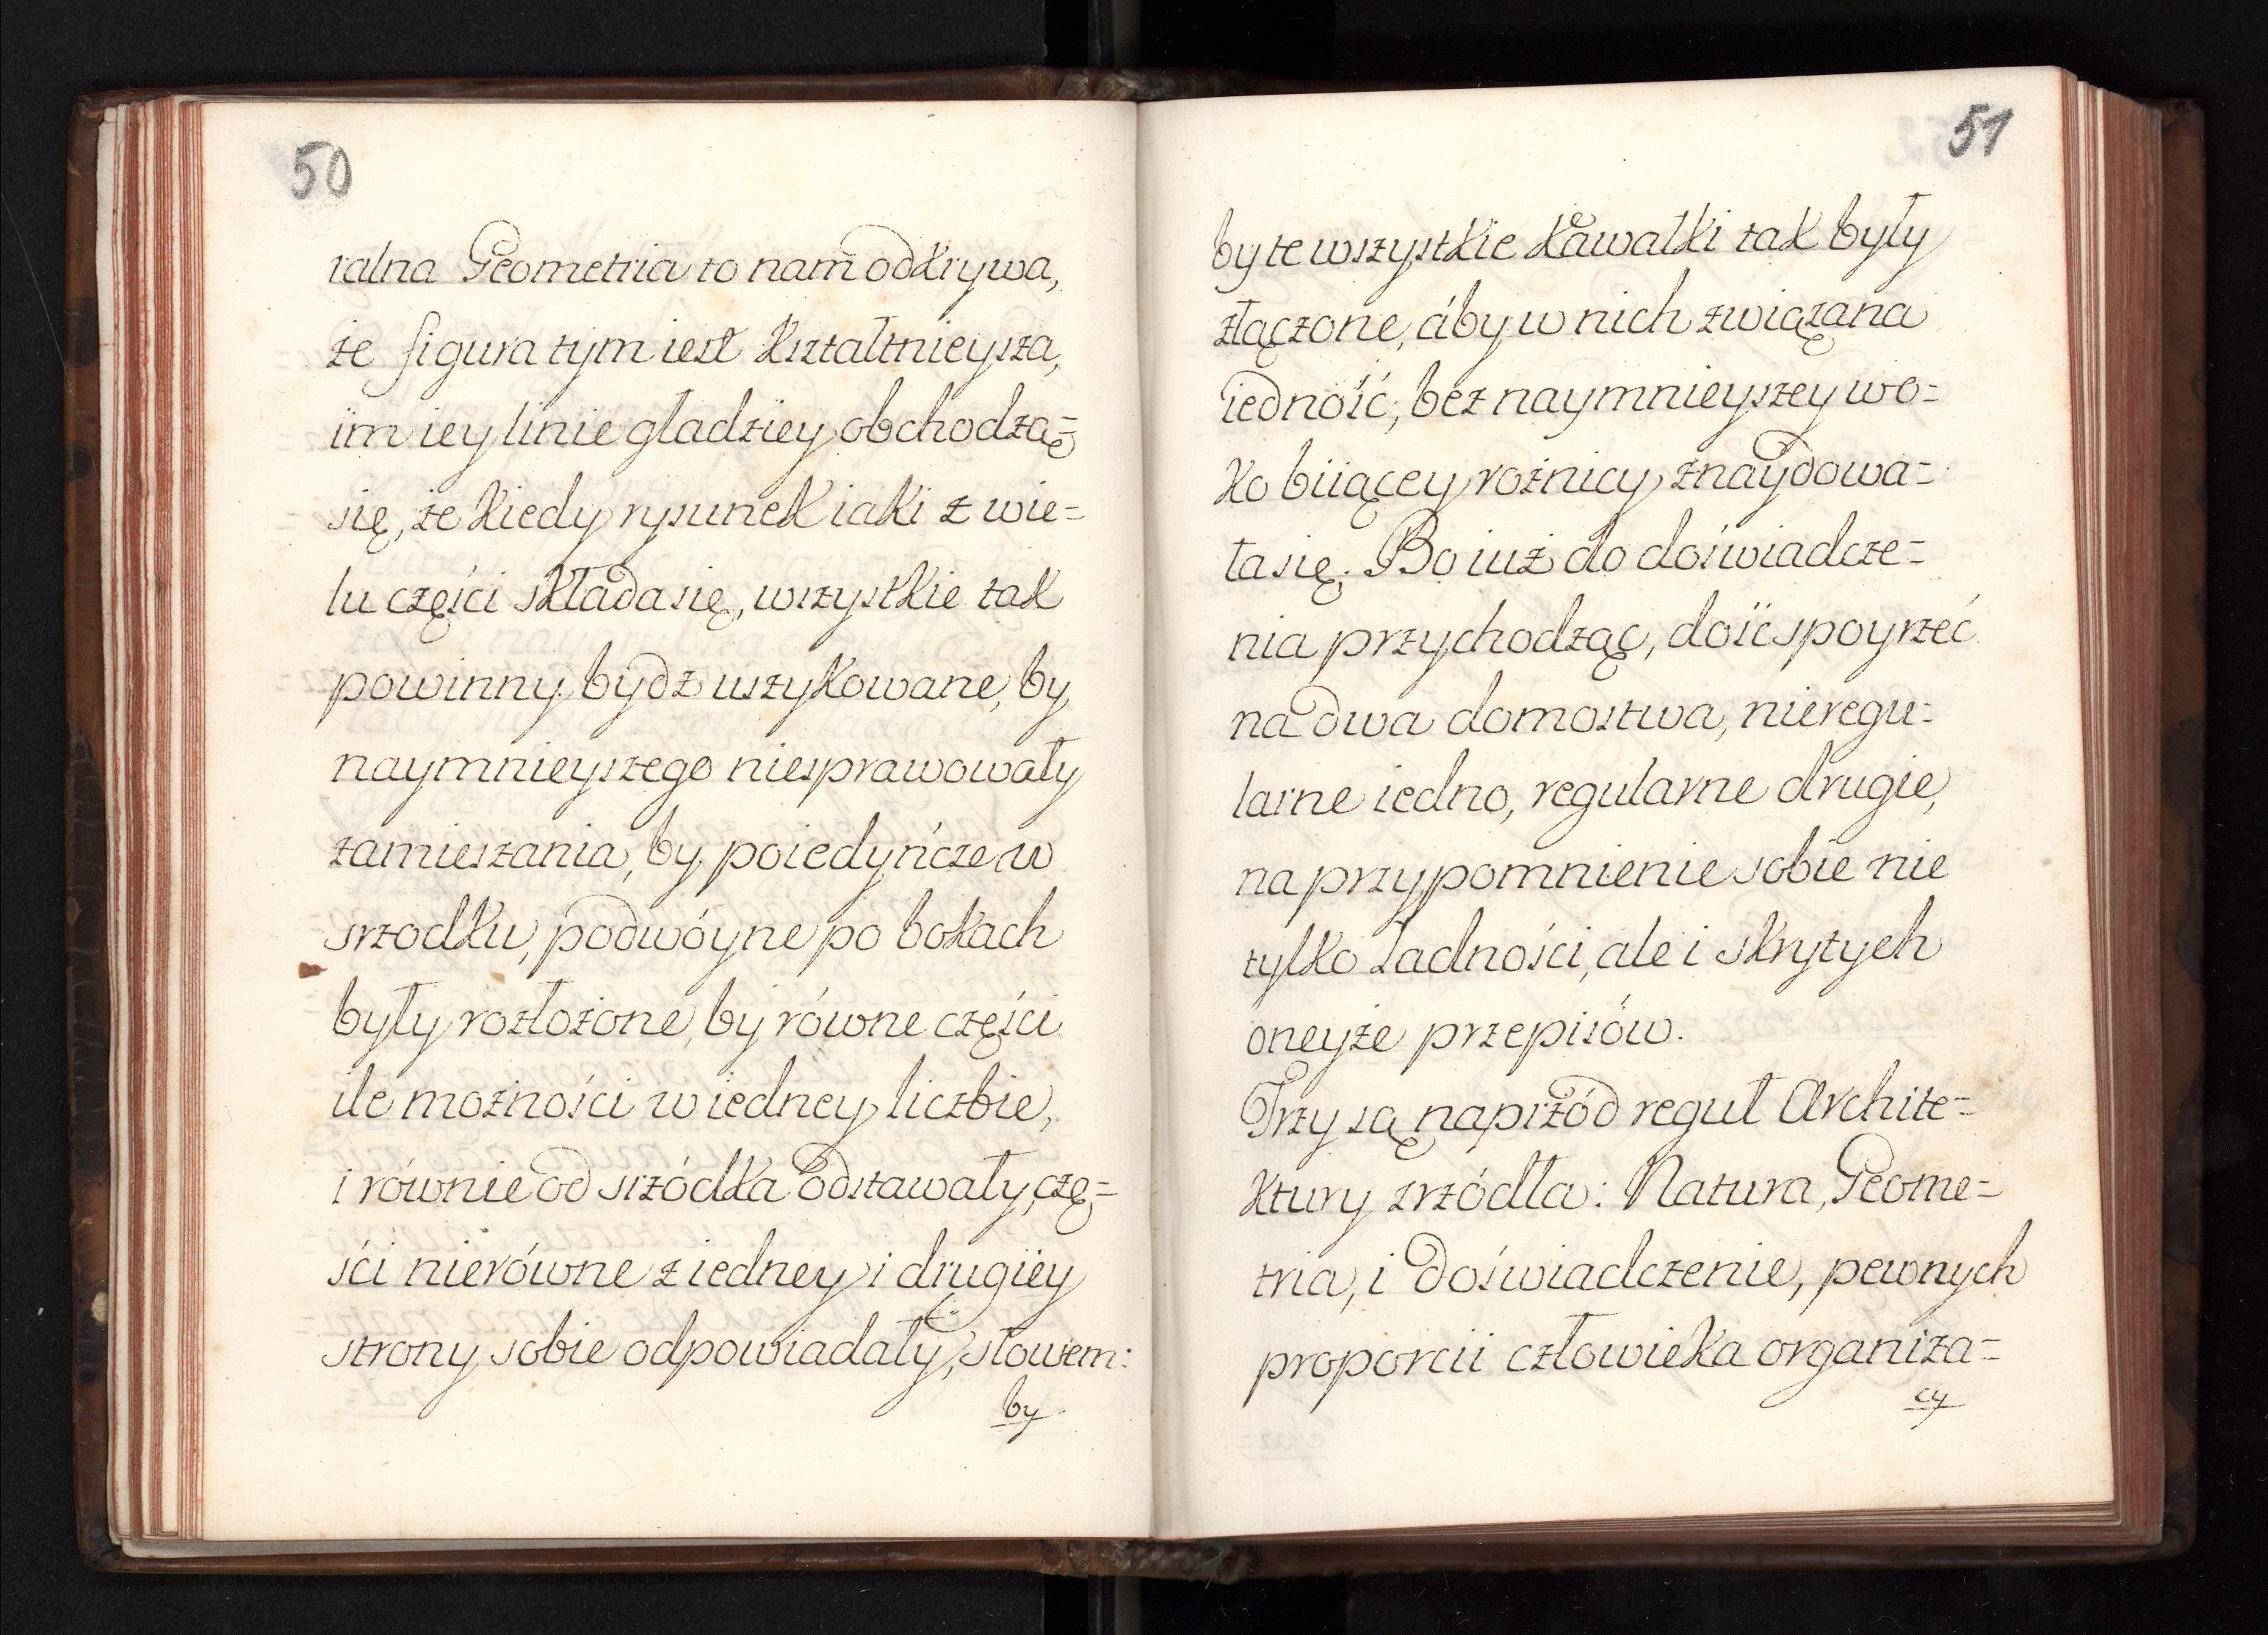 50
ralna Geometria to nam odkrywa,
że figura tym iest kształtnieysza,
im iey linie gładziey obchodzą=
się, że kiedy rysunek iaki z wie=
lu części składa się, wszystkie tak
powinny bydz uszykowane, by
naymnieyszego niesprawowały
zamieszania, by poiedyńcze w
srzodku, podwóyne po bokach
były rozłożone, by równe części
ile możności w iedney liczbie,
i równie od srzódka odstawały, czę=
ści nierówne z iedney i drugiey
strony sobie odpowiadały, słowem:
by
51
by te wszystkie kawałki tak były
złączone, áby w nich związana
iedność, bez naymnieyszey wo=
ko biiącey rożnicy znaydowa=
ła się. Bo iuż do doświadcze=
nia przychodząc, dość spoyrzeć
na dwa domostwa, nieregu=
larne iedno, regularne drugie,
na przypomnienie sobie nie
tylko ładności, ale i skrytych
oneyże przepisów.
Trzy są naprzód reguł Archite=
ktury zrzódła: Natura, Geome=
tria, i doświadczenie, pewnych
proporcii człowieka organiza=
cy